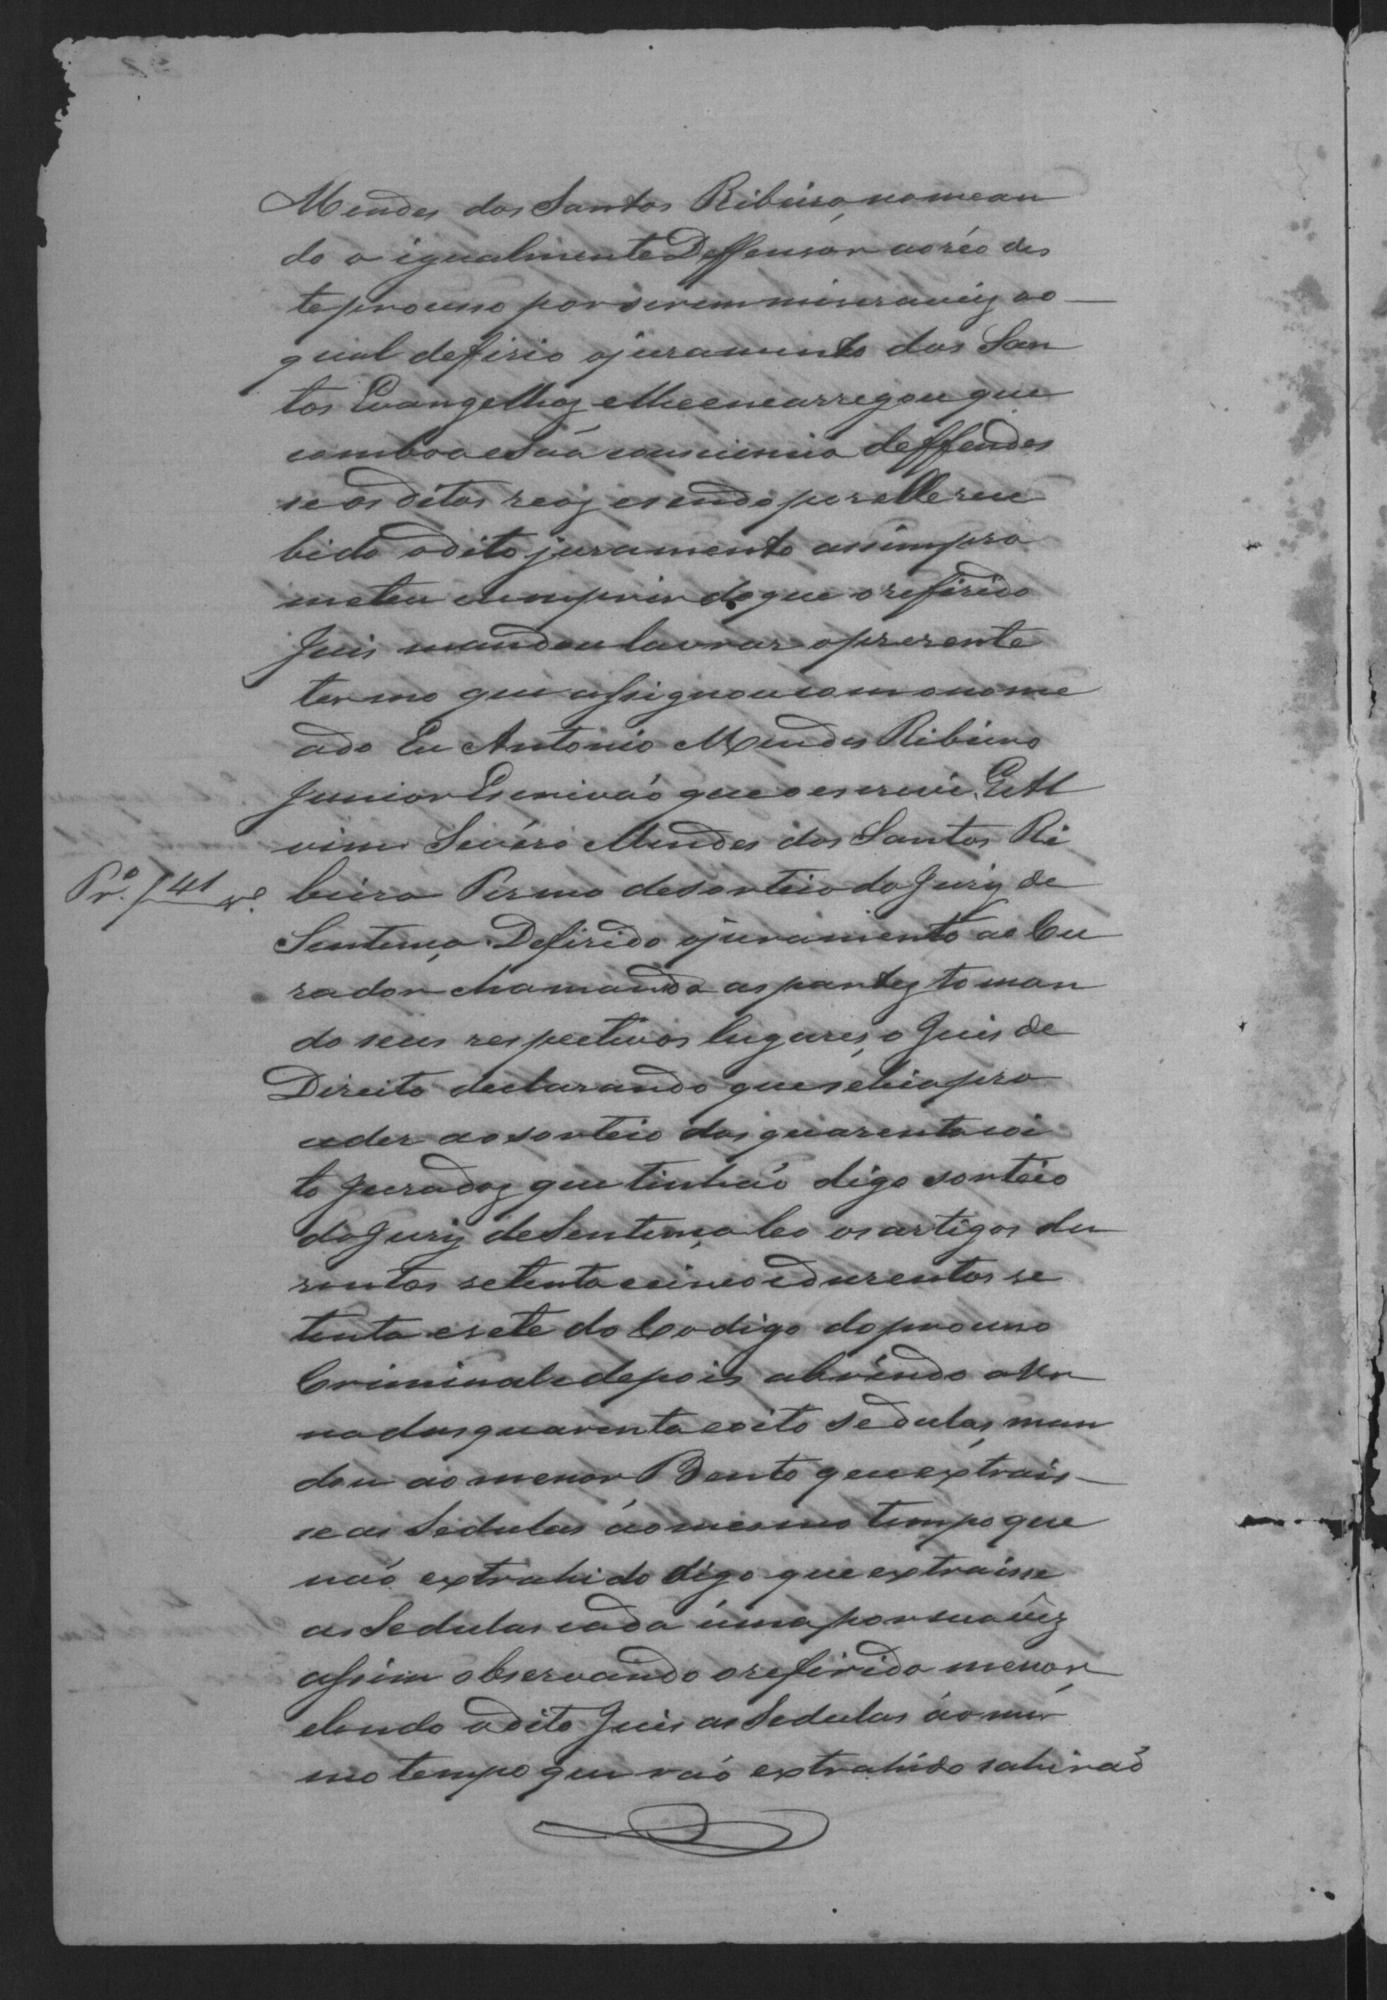 Mendes dos Santos Ribeiro, nomean
do o igualmente Deffensor ao réo des
te processo por serem miseraveis ao
qual defirio o juramento dos San
tos Evangelhos e lhe encarregou que
com boa e sãa consciencia deffendes
se os ditos reos, e sendo por elle rece
bido o dito juramento assim pro
meteu cumprir do que o refirido
Juis mandou lavrar o prezente
termo que assignou com o nome
ado Eu Antonio Mendes Ribeiro
Junior Escrivão que o escrevi.
vim Sevéro Mendes dos Santos Ri
Pr.º f 41 vº. beiro Termo de sorteio do Jury de
Sentença. Defirido o juramento ao Cu
rador chamando as partes toman
do seus respectivos lugares, o Juis de
Direito declarando que se hia pro
ceder ao sorteio dos quarenta e oi
to Jurados que tinhão digo sorteio
do Jury de Sentença leo os artigos du
zentos setenta e cinco e duzentos se
tenta e sete do Codigo do processo
Criminal e depois abrindo a Ur
na das quarenta e oito sedulas, man
dou ao menor Bento que extrais
se as Sedulas ao mesmo tempo que
não extrahido digo que extraisse
as Sedulas cada uma por sua vez
assim observando o refirido menor,
e lendo o dito Juis as Sedulas ao mes
mo tempo que vão extrahido sahirão